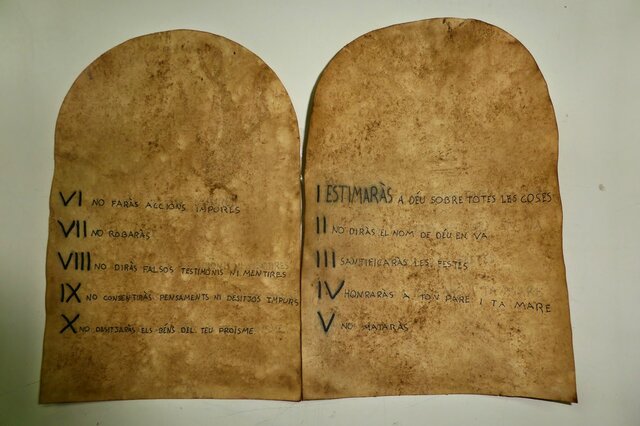 VI NO FARÀS ACCIONS IMPURES
VII NO ROBARÀS
VIII NO DIRÀS FALSOS TESTIMONIS NI MENTIRES
IX NO CONSENTIRÀS PENSAMENTS NI DESITJOS IMPURS
X NO DESITJARÀS ELS BÉNS DEL TEU PROÏSME
I ESTIMARÀS A DÉU SOBRE TOTES LES COSES
II NO DIRÀS EL NOM DE DÉU EN VA
III SANTIFICARÀS LES FESTES
IV HONRARÀS A TON PARE I TA MARE
V NO MATARÀS